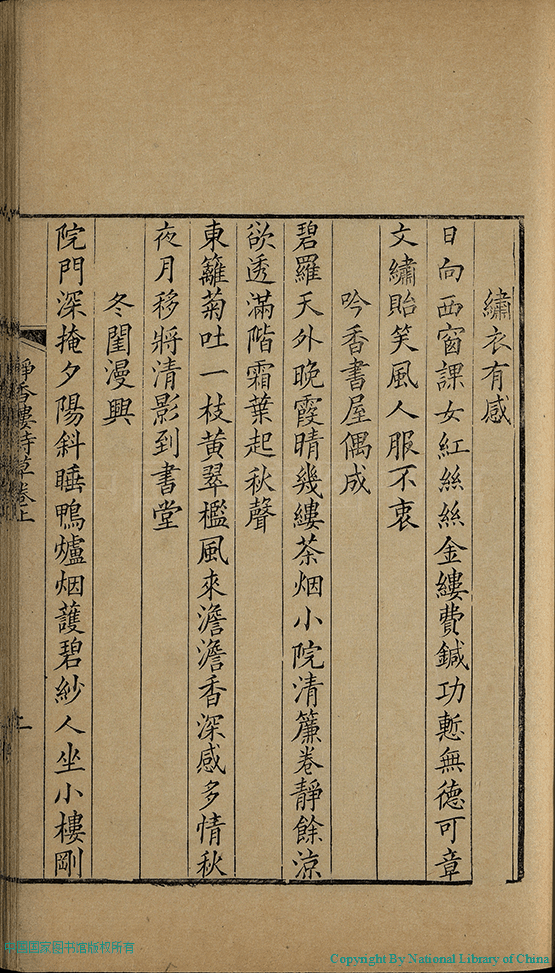 繡衣有感
日向西窗課女紅絲絲金縷費鍼功慙無德可章
文繡貽笑風人服不衷
吟香書屋偶成
碧羅天外晚霞晴幾縷茶烟小院清簾卷靜餘涼
欲透滿階霜葉起秋聲
東籬菊吐一枝黄翠檻風來澹澹香深感多情秋
夜月移將清影到書堂
冬閨漫興
院門深掩夕陽斜睡鴨爐烟護碧紗人坐小樓剛
靜香樓詩草卷上
中国国家图书馆版权所有
Copyright By National Library of China